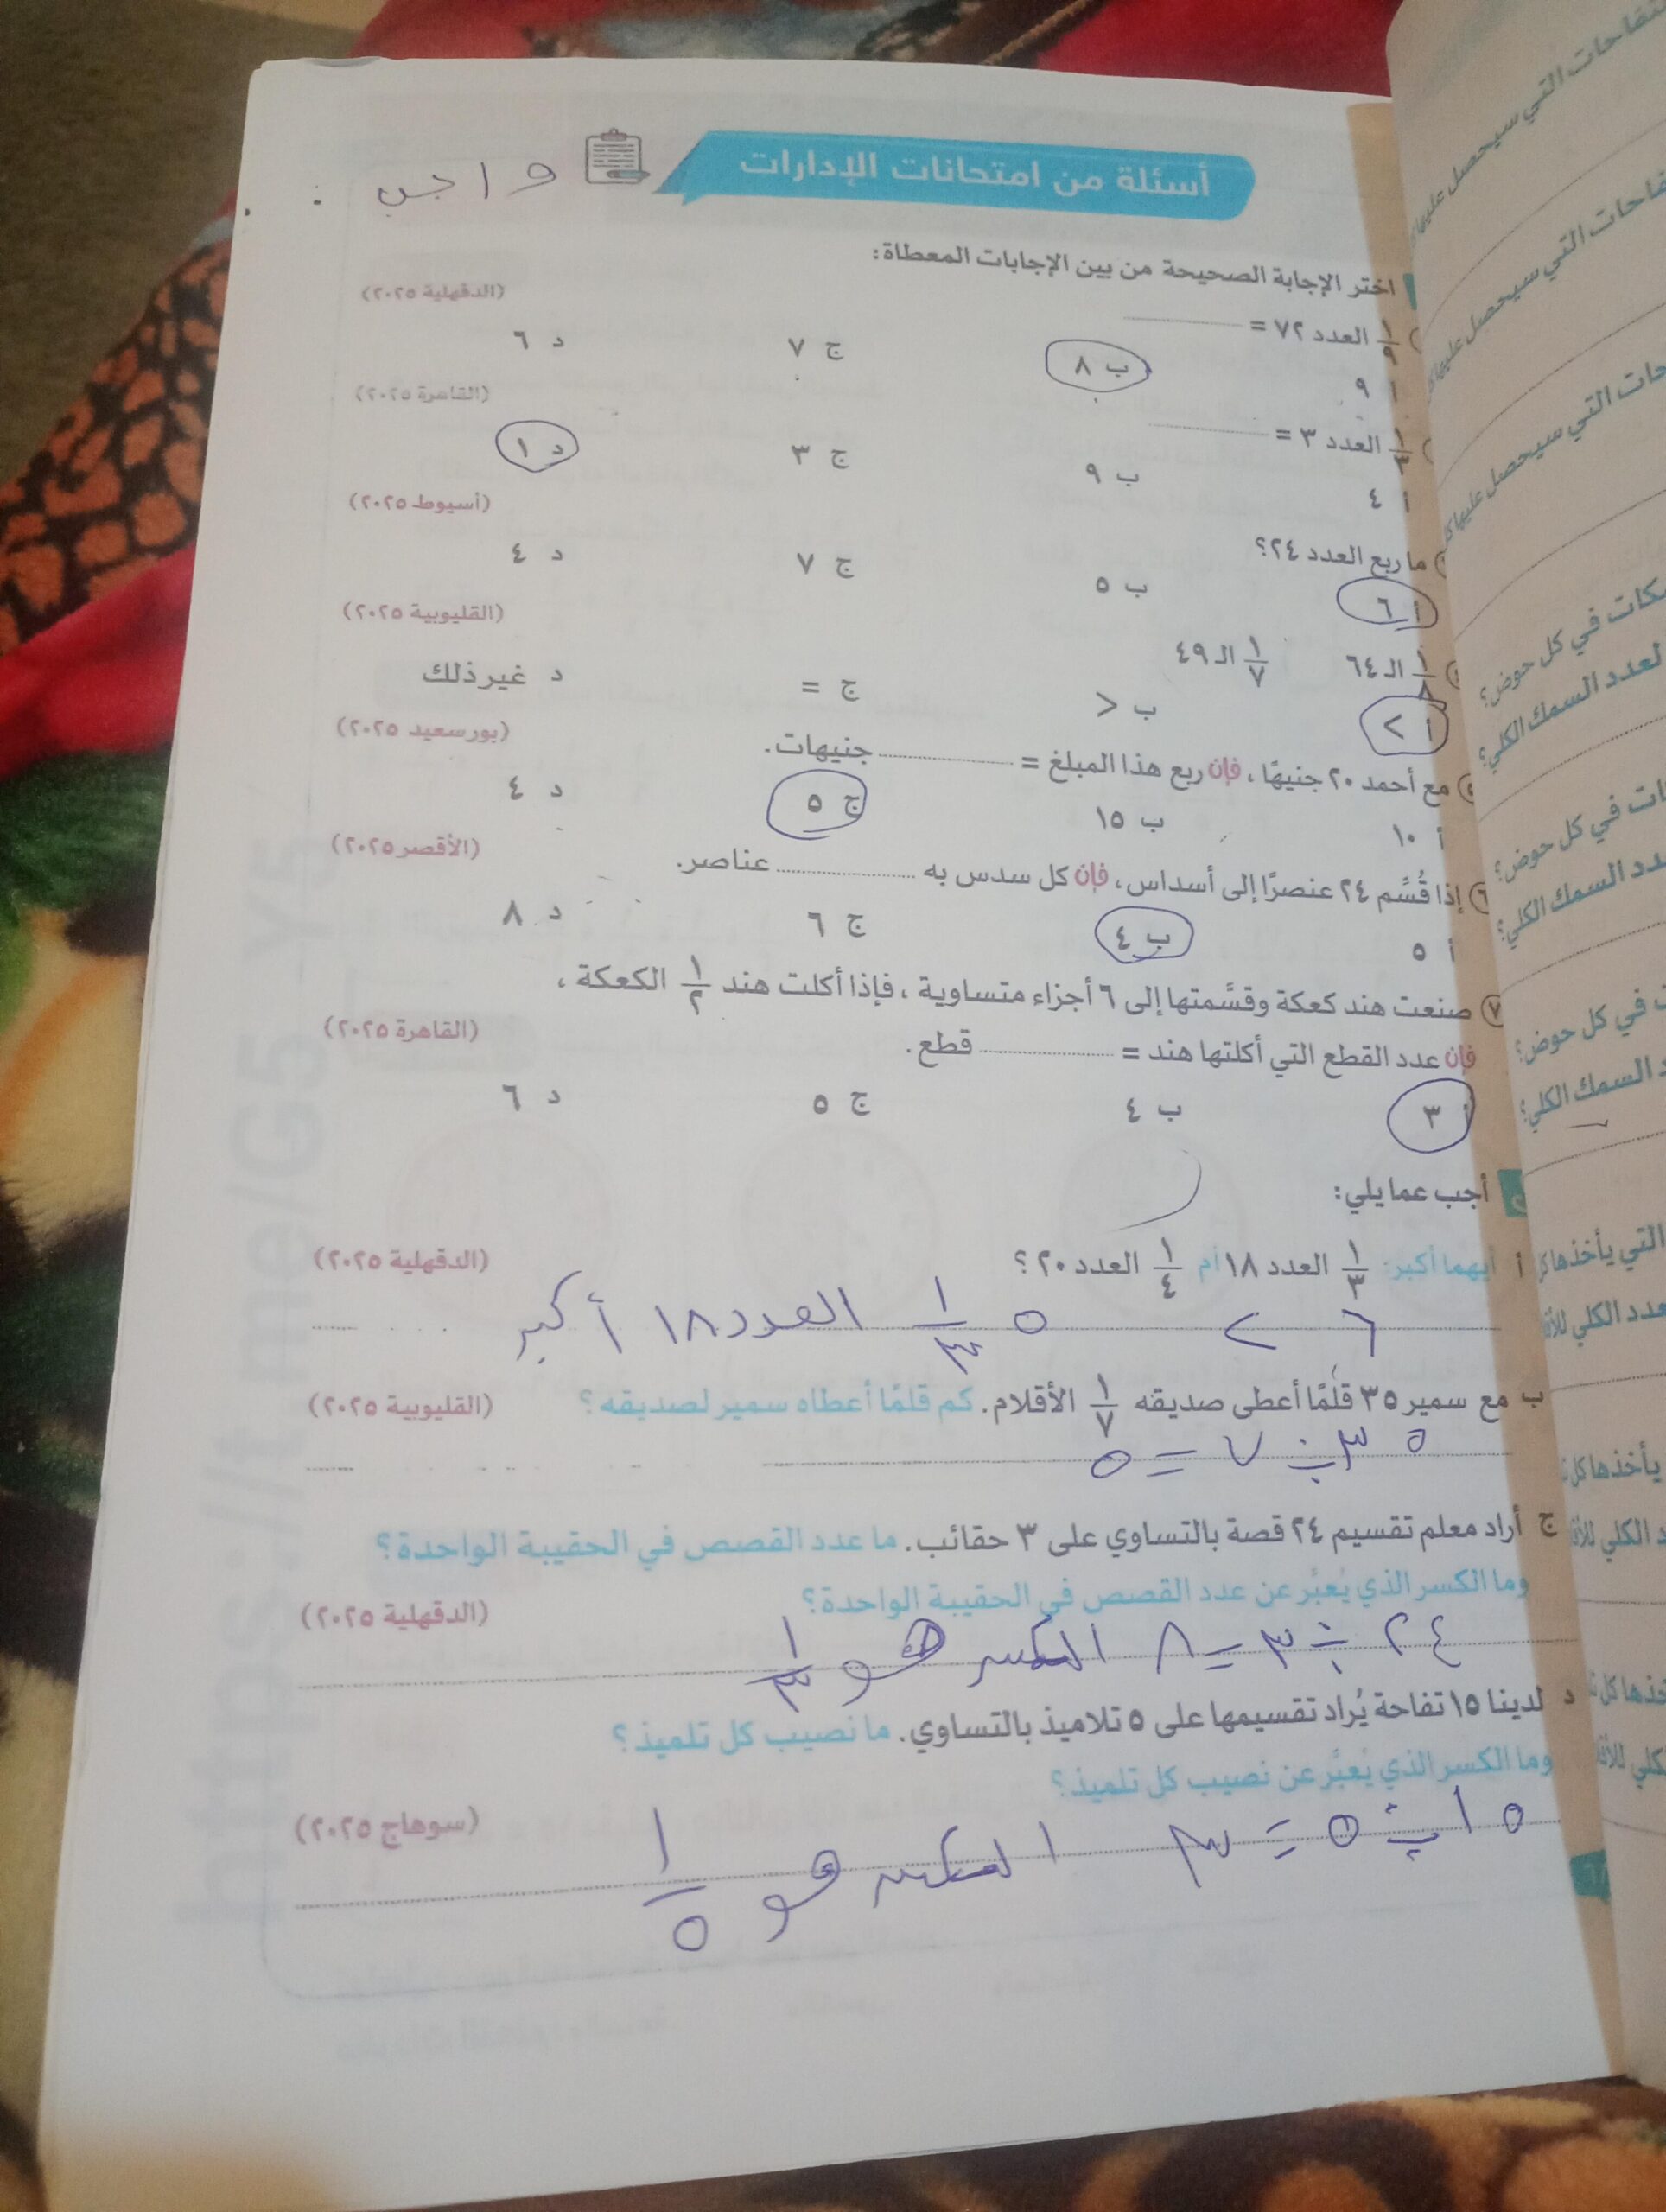 أسئلة من امتحانات الإدارات
واجب
اختر الإجابة الصحيحة من بين الإجابات المعطاة:
١/٩ العدد ٧٢ = (الدقهلية ٢٠٢٥)
أ ٩ ب ٨ ج ٧ د ٦
١/٣ العدد ٣ = (القاهرة ٢٠٢٥)
أ ٤ ب ٩ ج ٣ د ١
ما ربع العدد ٢٤؟ (أسيوط ٢٠٢٥)
أ ٦ ب ٥ ج ٧ د ٤
١/٨ الـ ٦٤ ١/٧ الـ ٤٩ (القليوبية ٢٠٢٥)
أ > ب < ج = د غير ذلك
٥ مع أحمد ٢٠ جنيهًا، فإن ربع هذا المبلغ = جنيهات. (بورسعيد ٢٠٢٥)
أ ١٠ ب ١٥ ج ٥ د ٤
٦ إذا قُسِّم ٢٤ عنصرًا إلى أسداس، فإن كل سدس به عناصر. (الأقصر ٢٠٢٥)
أ ٥ ب ٤ ج ٦ د ٨
٧ صنعت هند كعكة وقسَّمتها إلى ٦ أجزاء متساوية، فإذا أكلت هند ١/٢ الكعكة،
فإن عدد القطع التي أكلتها هند = قطع. (القاهرة ٢٠٢٥)
أ ٣ ب ٤ ج ٥ د ٦
أجب عما يلي:
أ أيهما أكبر: ١/٣ العدد ١٨ أم ١/٤ العدد ٢٠؟ (الدقهلية ٢٠٢٥)
٦ > ٥ ١/٣ العدد ١٨ أكبر
ب مع سمير ٣٥ قلمًا أعطى صديقه ١/٧ الأقلام. كم قلمًا أعطاه سمير لصديقه؟ (القليوبية ٢٠٢٥)
٣٥ ÷ ٧ = ٥
ج أراد معلم تقسيم ٢٤ قصة بالتساوي على ٣ حقائب. ما عدد القصص في الحقيبة الواحدة؟
وما الكسر الذي يُعبِّر عن عدد القصص في الحقيبة الواحدة؟ (الدقهلية ٢٠٢٥)
٢٤ ÷ ٣ = ٨ الكسر هو ١/٣
د لدينا ١٥ تفاحة يُراد تقسيمها على ٥ تلاميذ بالتساوي. ما نصيب كل تلميذ؟
وما الكسر الذي يُعبِّر عن نصيب كل تلميذ؟ (سوهاج ٢٠٢٥)
١٥ ÷ ٥ = ٣ الكسر هو ١/٥